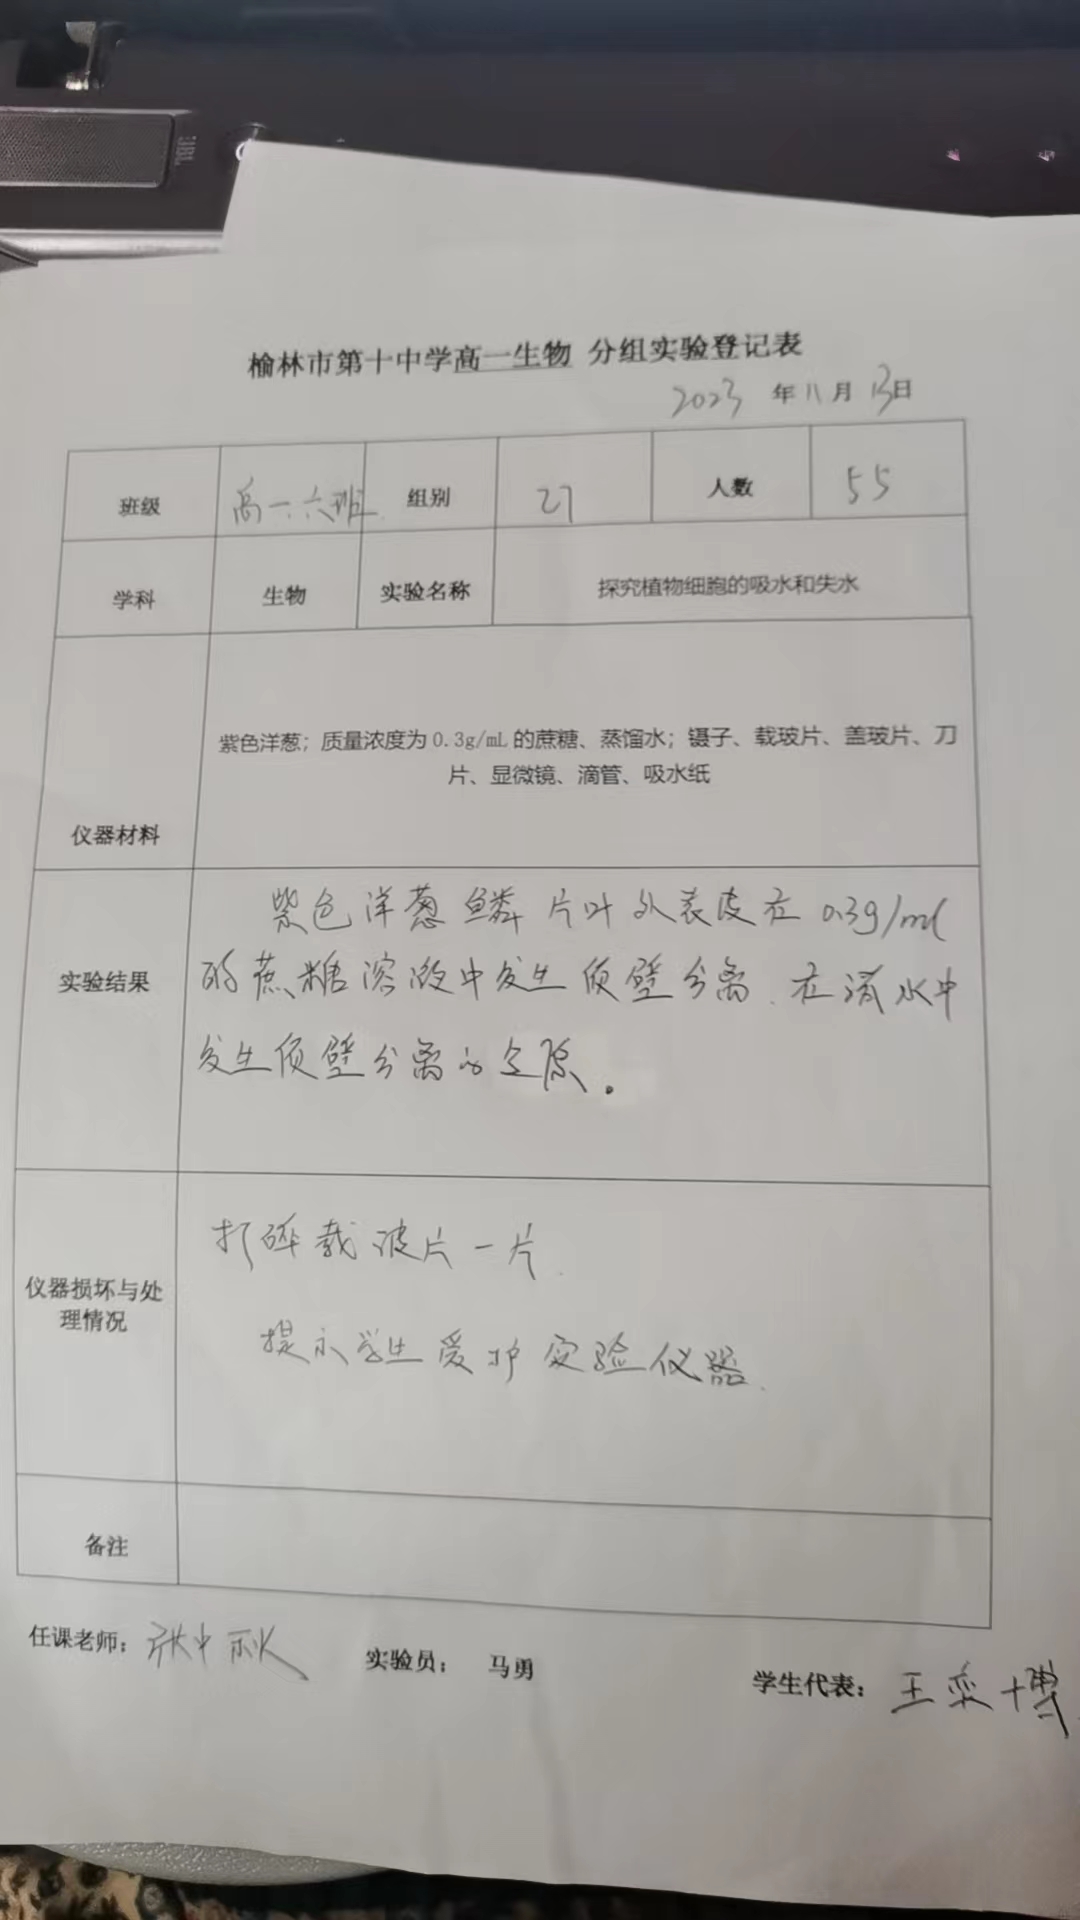 JBL
榆林市第十中学高一生物 分组实验登记表
2023 年 11 月 13 日
班级 高一.六班 组别 27 人数 55
学科 生物 实验名称 探究植物细胞的吸水和失水
紫色洋葱；质量浓度为 0.3g/mL 的蔗糖、蒸馏水；镊子、载玻片、盖玻片、刀
片、显微镜、滴管、吸水纸
仪器材料
紫色洋葱鳞片叶外表皮在 0.3g/ml
实验结果 的蔗糖溶液中发生质壁分离.在清水中
发生质壁分离的复原。
打碎载玻片一片.
仪器损坏与处
理情况
提示学生爱护实验仪器.
备注
任课老师： 张中秋 实验员： 马勇 学生代表： 王奕博